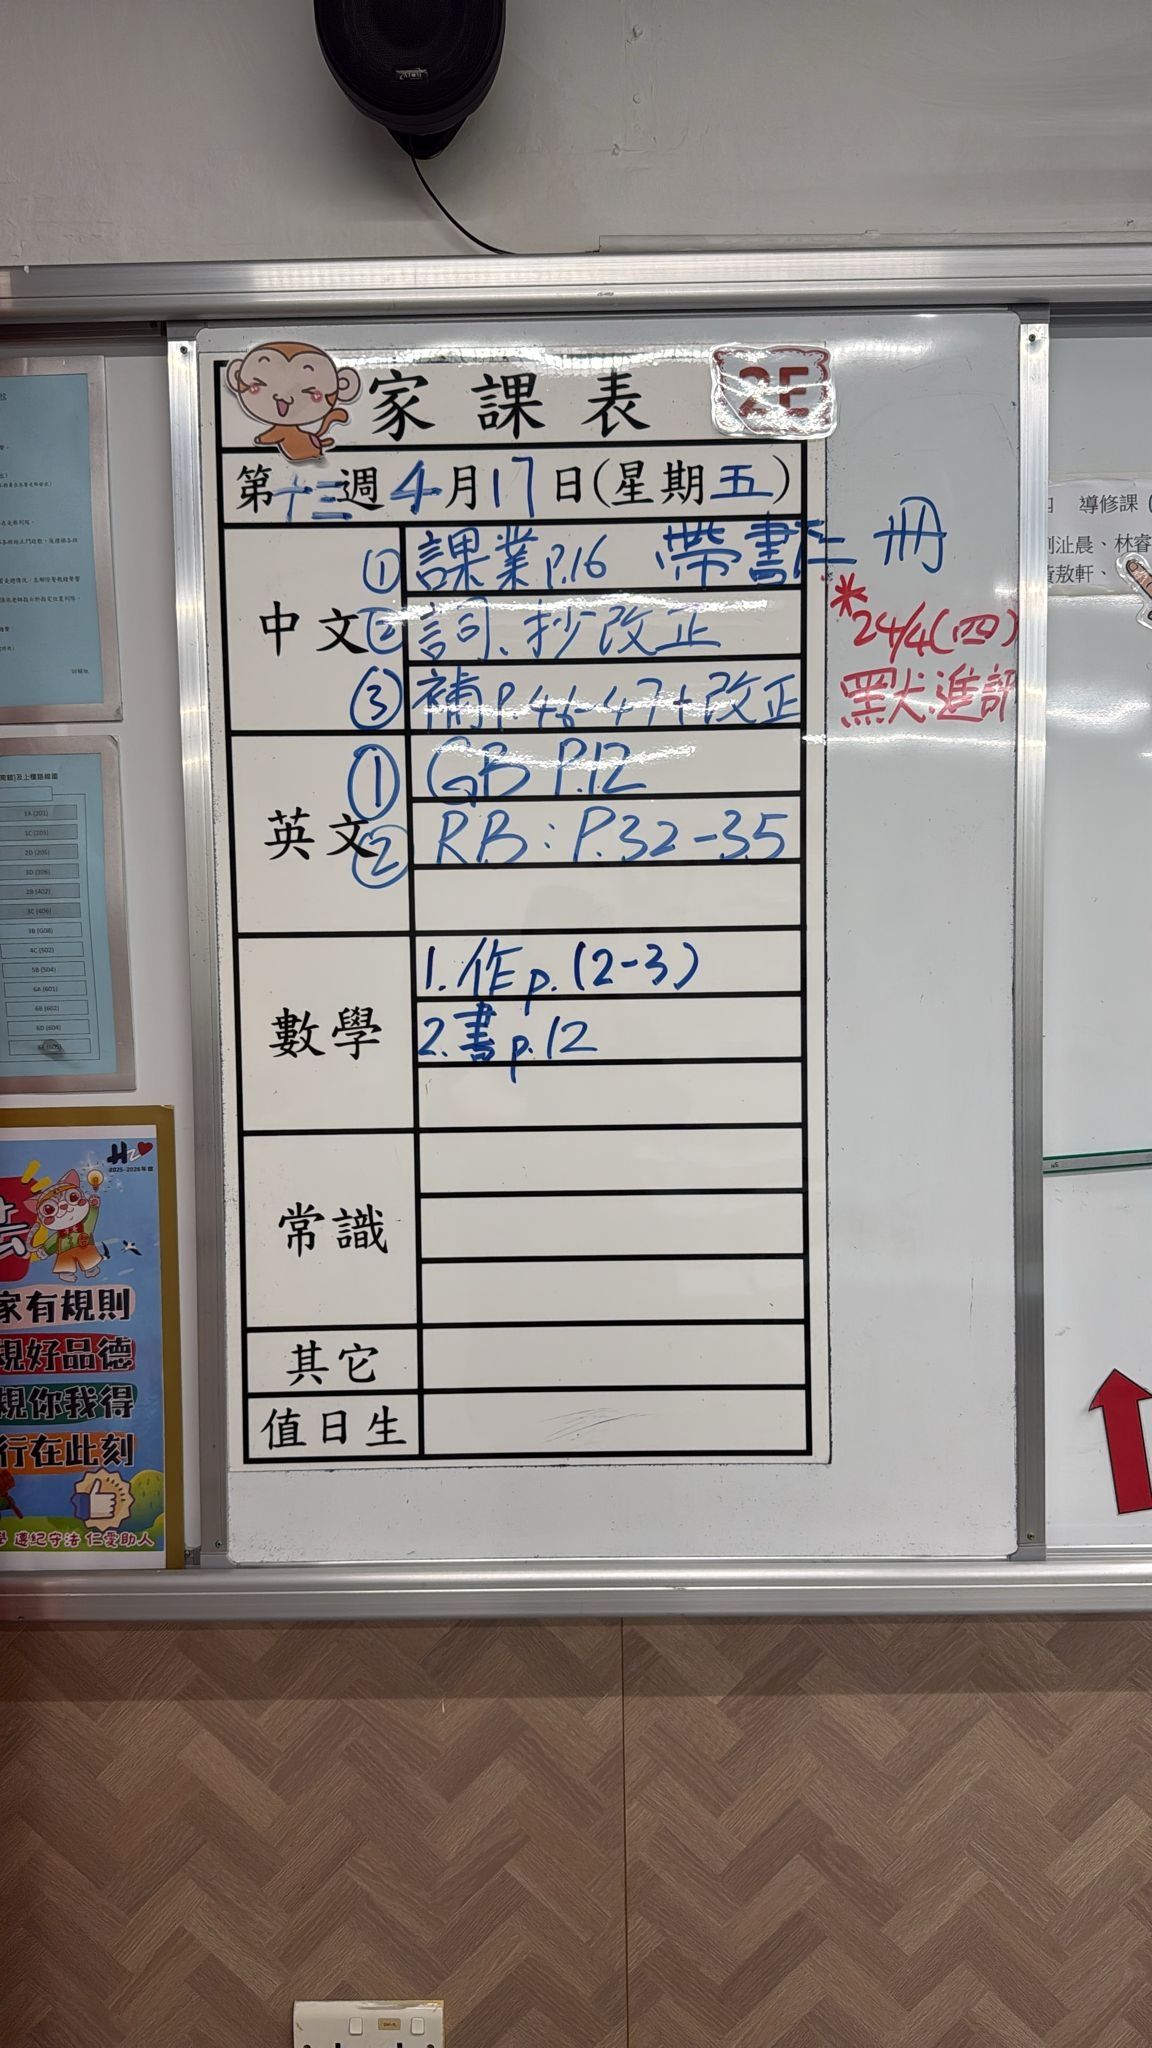 家課表
2E
第十三週4月17日(星期五)
中文
①課業p.16 帶書仁二冊
②詞、抄改正
③補P.46-47+改正
*24/4(四)
默犬進評
英文
①GB P.12
②RB:P.32-35
數學
1.作p.(2-3)
2.書p.12
常識
其它
值日生
導修課
林睿
1A (201)
1C (203)
2D (205)
3D (306)
2B (402)
3C (406)
3B (G08)
4C (502)
5B (504)
6A (601)
6B (602)
6D (604)
2025-2026年度
家有規則
規好品德
親你我得
行在此刻
遵紀守法 仁愛助人